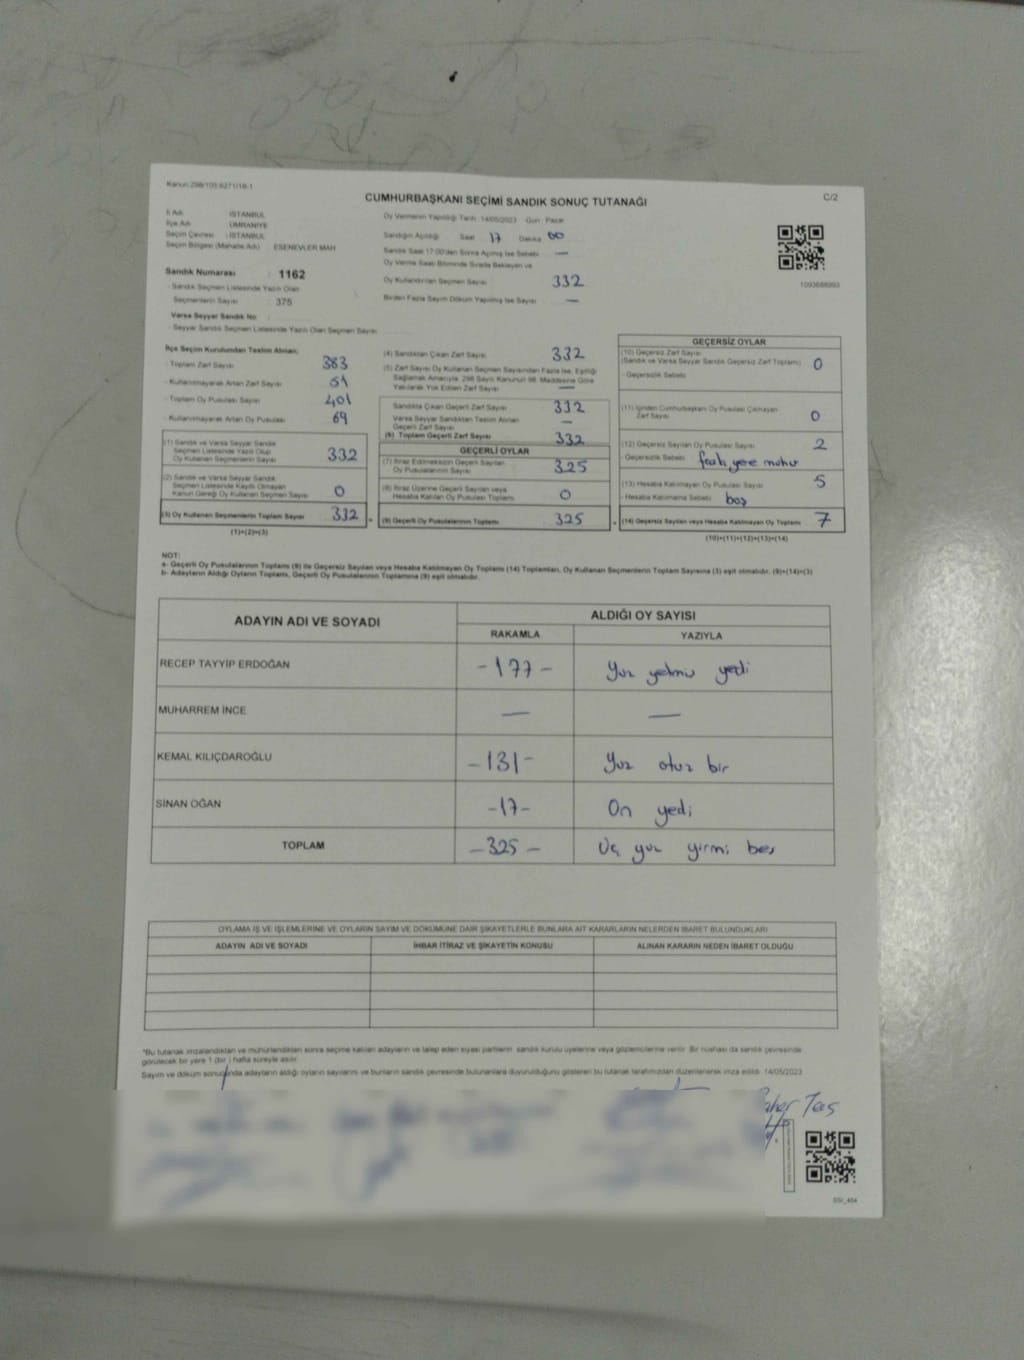 Kanun:298/105 6271/18-1
CUMHURBAŞKANI SEÇİMİ SANDIK SONUÇ TUTANAĞI
C/2
İl Adı : İSTANBUL
İlçe Adı : ÜMRANİYE
Seçim Çevresi : İSTANBUL
Seçim Bölgesi (Mahalle Adı) : ESENEVLER MAH
Sandık Numarası : 1162
Sandık Seçmen Listesinde Yazılı Olan
Seçmenlerin Sayısı : 375
Varsa Seyyar Sandık No :
- Seyyar Sandık Seçmen Listesinde Yazılı Olan Seçmen Sayısı
Oy Vermenin Yapıldığı Tarih : 14/05/2023 Gün : Pazar
Sandığın Açıldığı Saat 17 Dakika 00
Sandık Saat 17.00'den Sonra Açılmış İse Sebebi —
Oy Verme Saati Bitiminde Sırada Bekleyen ve
Oy Kullandırılan Seçmen Sayısı 332
Birden Fazla Sayım Döküm Yapılmış İse Sayısı —
1093688993
İlçe Seçim Kurulundan Teslim Alınan;
- Toplam Zarf Sayısı 383
- Kullanılmayarak Artan Zarf Sayısı 51
- Toplam Oy Pusulası Sayısı 401
- Kullanılmayarak Artan Oy Pusulası 69
(1) Sandık ve Varsa Seyyar Sandık
Seçmen Listesinde Yazılı Olup
Oy Kullanan Seçmenlerin Sayısı 332
(2) Sandık ve Varsa Seyyar Sandık
Seçmen Listesinde Kayıtlı Olmayan
Kanun Gereği Oy Kullanan Seçmen Sayısı 0
(3) Oy Kullanan Seçmenlerin Toplam Sayısı 332
(1)+(2)=(3)
(4) Sandıktan Çıkan Zarf Sayısı 332
(5) Zarf Sayısı Oy Kullanan Seçmen Sayısından Fazla İse, Eşitliği
Sağlamak Amacıyla, 298 Sayılı Kanunun 98. Maddesine Göre
Yakılarak Yok Edilen Zarf Sayısı —
Sandıkta Çıkan Geçerli Zarf Sayısı 332
Varsa Seyyar Sandıktan Teslim Alınan
Geçerli Zarf Sayısı —
(6) Toplam Geçerli Zarf Sayısı 332
GEÇERLİ OYLAR
(7) İtiraz Edilmeksizin Geçerli Sayılan
Oy Pusulalarının Sayısı 325
(8) İtiraz Üzerine Geçerli Sayılan veya
Hesaba Katılan Oy Pusulası Toplamı 0
(9) Geçerli Oy Pusulalarının Toplamı 325
GEÇERSİZ OYLAR
(10) Geçersiz Zarf Sayısı
(Sandık ve Varsa Seyyar Sandık Geçersiz Zarf Toplamı) 0
- Geçersizlik Sebebi
(11) İçinden Cumhurbaşkanı Oy Pusulası Çıkmayan
Zarf Sayısı 0
(12) Geçersiz Sayılan Oy Pusulası Sayısı 2
- Geçersizlik Sebebi fazla yere mühür
(13) Hesaba Katılmayan Oy Pusulası Sayısı 5
- Hesaba Katılmama Sebebi boş
(14) Geçersiz Sayılan veya Hesaba Katılmayan Oy Toplamı 7
(10)+(11)+(12)+(13)=(14)
NOT:
a- Geçerli Oy Pusulalarının Toplamı (9) ile Geçersiz Sayılan veya Hesaba Katılmayan Oy Toplamı (14) Toplamları, Oy Kullanan Seçmenlerin Toplam Sayısına (3) eşit olmalıdır. (9)+(14)=(3)
b- Adayların Aldığı Oyların Toplamı, Geçerli Oy Pusulalarının Toplamına (9) eşit olmalıdır.
ADAYIN ADI VE SOYADI
ALDIĞI OY SAYISI
RAKAMLA YAZIYLA
RECEP TAYYİP ERDOĞAN -177- Yüz yetmiş yedi
MUHARREM İNCE — —
KEMAL KILIÇDAROĞLU -131- Yüz otuz bir
SİNAN OĞAN -17- On yedi
TOPLAM -325- Üç yüz yirmi beş
OYLAMA İŞ VE İŞLEMLERİNE VE OYLARIN SAYIM VE DÖKÜMÜNE DAİR ŞİKAYETLERLE BUNLARA AİT KARARLARIN NELERDEN İBARET BULUNDUKLARI
ADAYIN ADI VE SOYADI İHBAR İTİRAZ VE ŞİKAYETİN KONUSU ALINAN KARARIN NEDEN İBARET OLDUĞU
*Bu tutanak imzalandıktan ve mühürlendikten sonra seçime katılan adayların ve talep eden siyasi partilerin sandık kurulu üyelerine veya gözlemcilerine verilir. Bir nüshası da sandık çevresinde
görülecek bir yere 1 (bir ) hafta süreyle asılır.
Sayım ve döküm sonucunda adayların aldığı oyların sayılarını ve bunların sandık çevresinde bulunanlara duyurulduğunu gösteren bu tutanak tarafımızdan düzenlenerek imza edildi. 14/05/2023